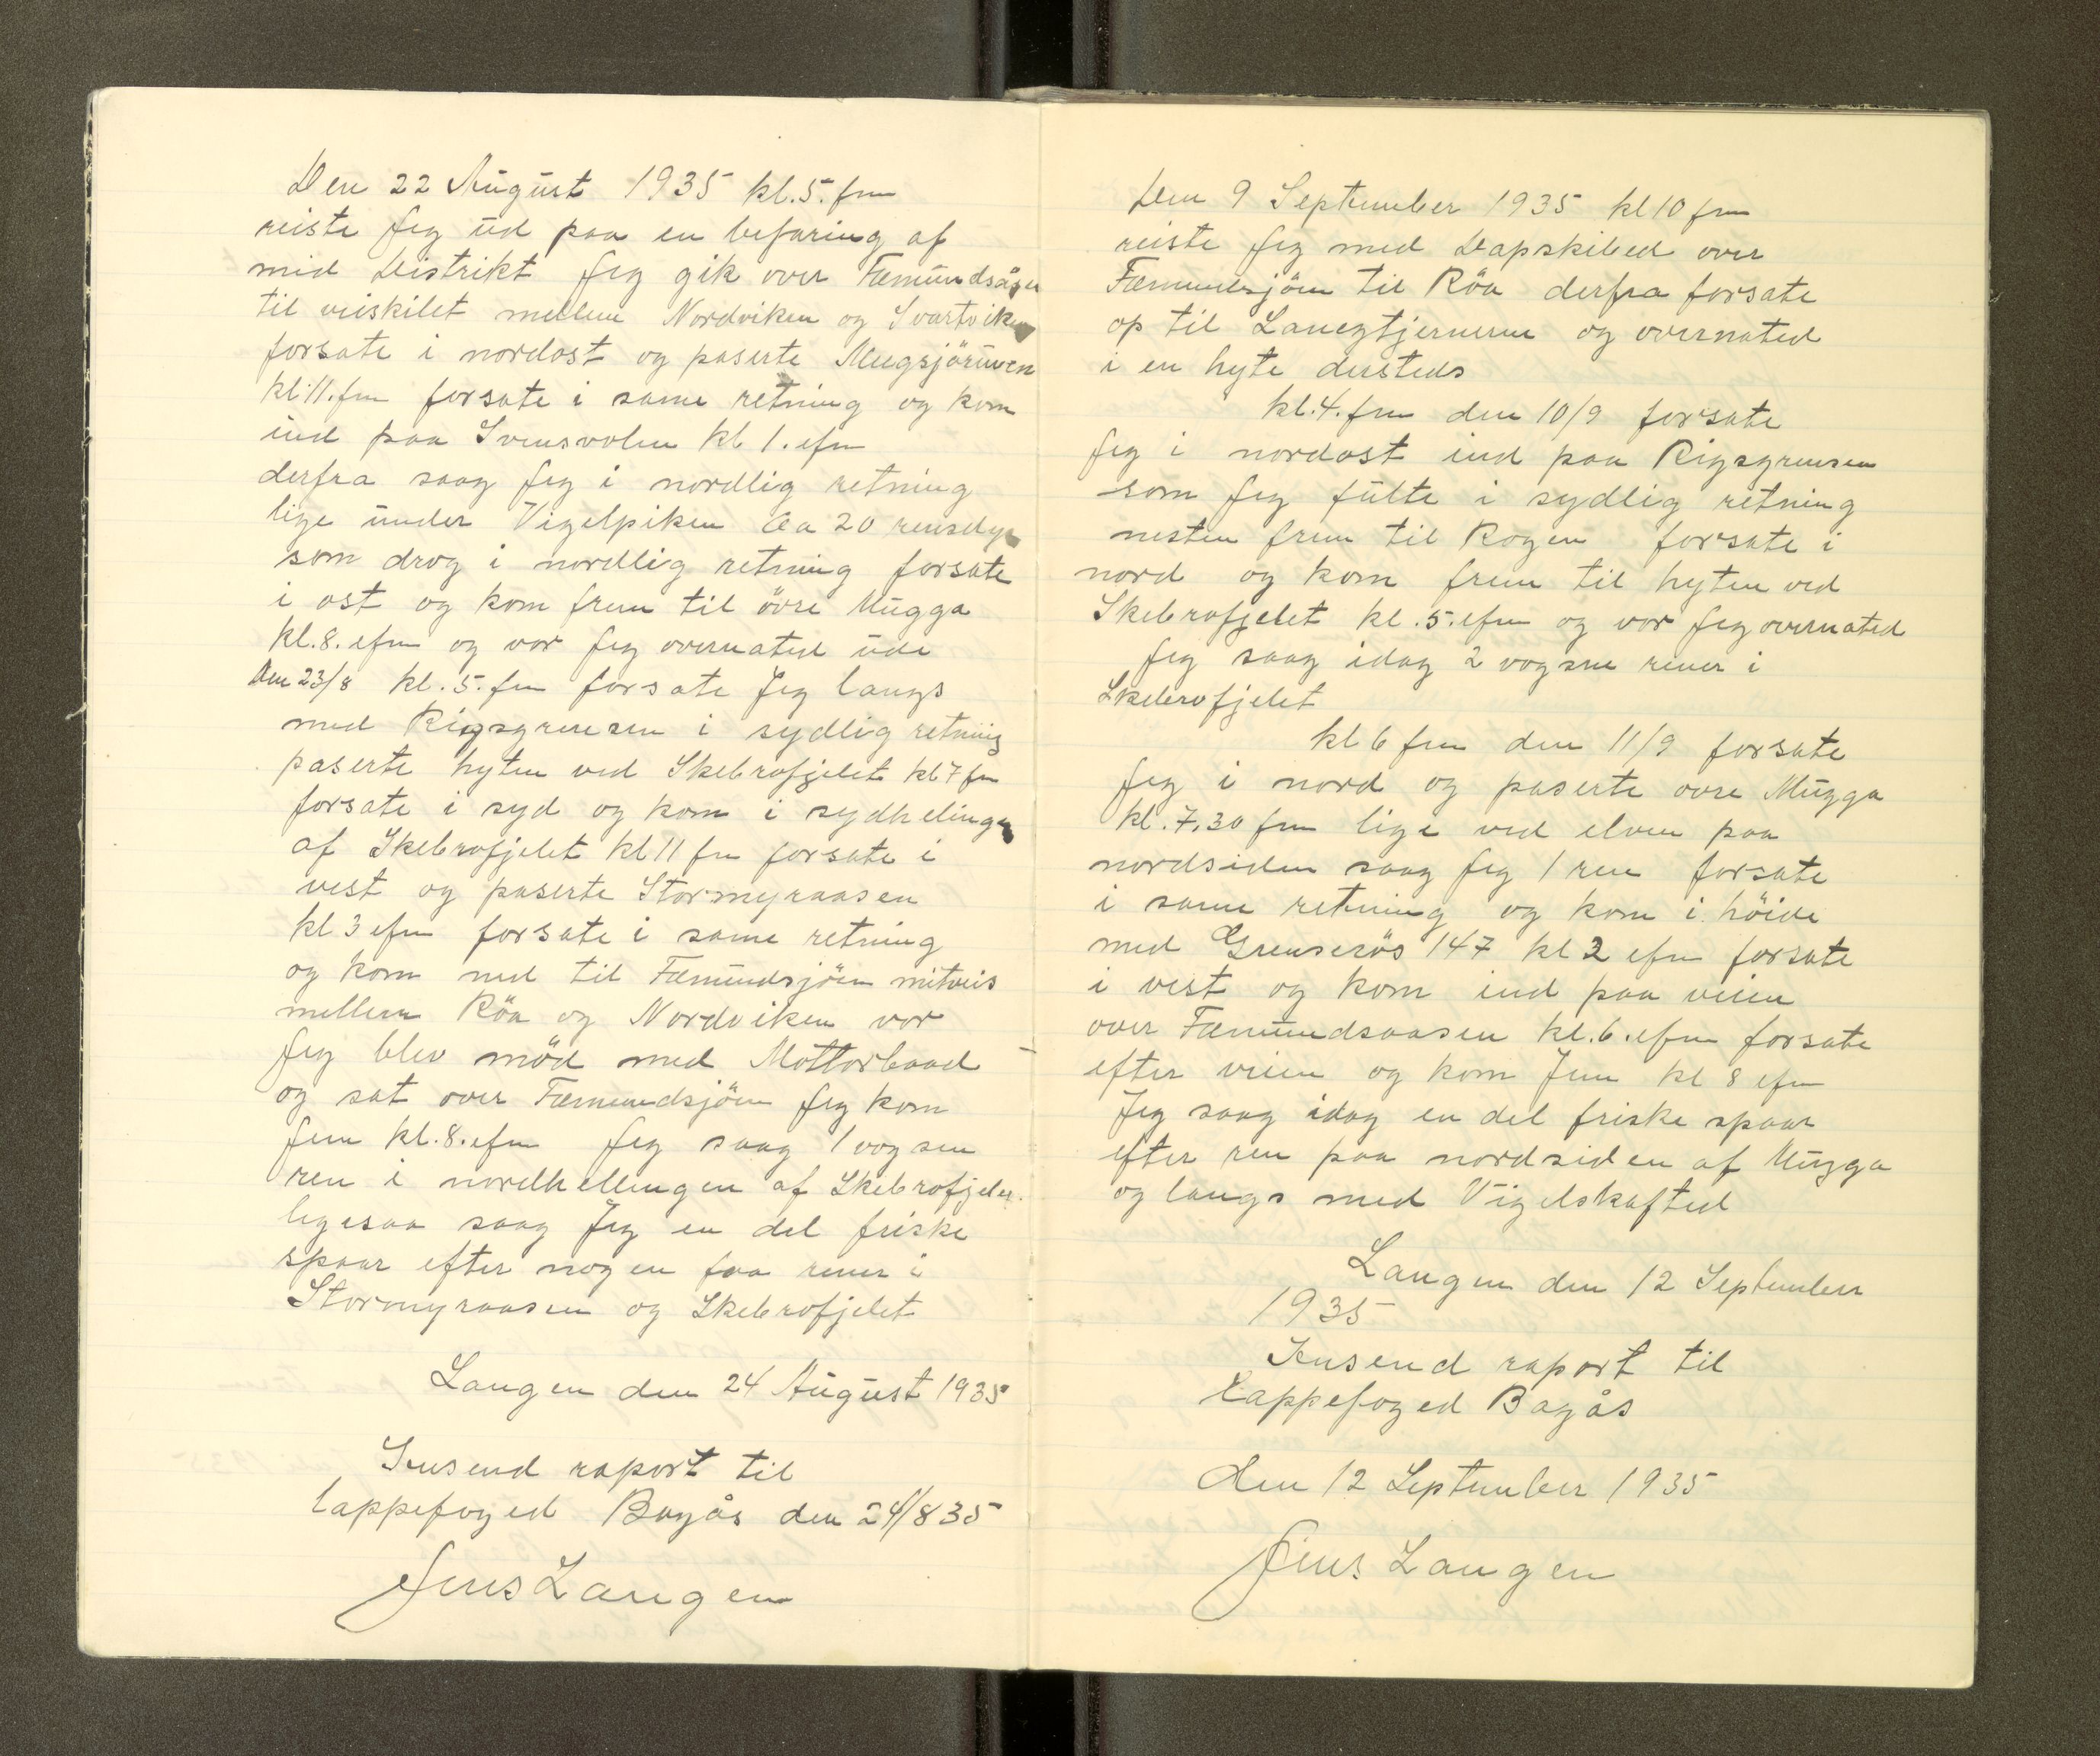 Den 22 August 1935 kl. 5. fm
reiste Jeg ud paa en befaring af
mid Distrikt Jeg gik over Fæmundsåsen
til veiskilet mellem Nordviken og Svartviken
forsate i nordost og paserte Mugsjøruven
kl 11. fm forsate i same retning og kom
ind paa Svensvolen kl 1. efm
derfra saag Jeg i nordlig retning
lige under Vigelpiken Ca 20 rensdyr
som drog i nordlig retning forsate
i ost og kom frem til övre Mugga
kl. 8. efm og vor Jeg overnated ude
Den 23/8 kl. 5. fm forsate Jeg langs
med Rigsgrensen i sydlig retning
paserte hyten ved Skebrofjelet kl 7 fm
forsate i syd og kom i sydhelingen
af Skebrofjelet kl 11 fm forsate i
vest og paserte Stormyraasen
kl 3 efm forsate i same retning
og kom ned til Fæmundsjöen mitveis
mellem Röa og Nordviken vor
Jeg blev möd med Mottorbaad
og sat over Fæmundsjöen Jeg kom
Jem kl. 8. efm Jeg saag 1 vogsen
ren i nordhellingen af Skebrofjelet
ligesaa saag Jeg en del friske
spaar efter nogen faa rener i
Stormyraasen og Skebrofjelet
Langen den 24 August 1935
Insend raport til
lappefoged Bagås den 24/8 35
Jens Langen
Den 9 September 1935 kl 10 fm
reiste Jeg med Dapskibed over
Fæmundsjöen til Röa derfra forsate
op til Langtjernerne og overnated
i en hyte dersteds
kl. 4. fm den 10/9 forsate
Jeg i nordost ind paa Rigsgrensen
som Jeg fulte i sydlig retning
nesten frem til Rogen forsate i
nord og kom frem til hyten ved
Skebrofjelet kl. 5. efm og vor Jeg overnated
Jeg saag idag 2 vogsne rener i
Skebrofjelet
kl 6 fm den 11/9 forsate
Jeg i nord og paserte ovre Mugga
kl. 7,30 fm lige ved elven paa
nordsiden saag Jeg 1 ren forsate
i same retning og kom i höide
med Grenserös 147 kl 2 efm forsate
i vest og kom ind paa veien
over Fæmundsaasen kl. 6. efm forsate
efter veien og kom Jem kl 8 efm
Jeg saag idag en del friske spaar
efter ren paa nordsiden af Mugga
og langs med Vigelskafted
Langen den 12 September
1935
Insend raport til
Lappefoged Bagås
den 12 September 1935
Jens Langen